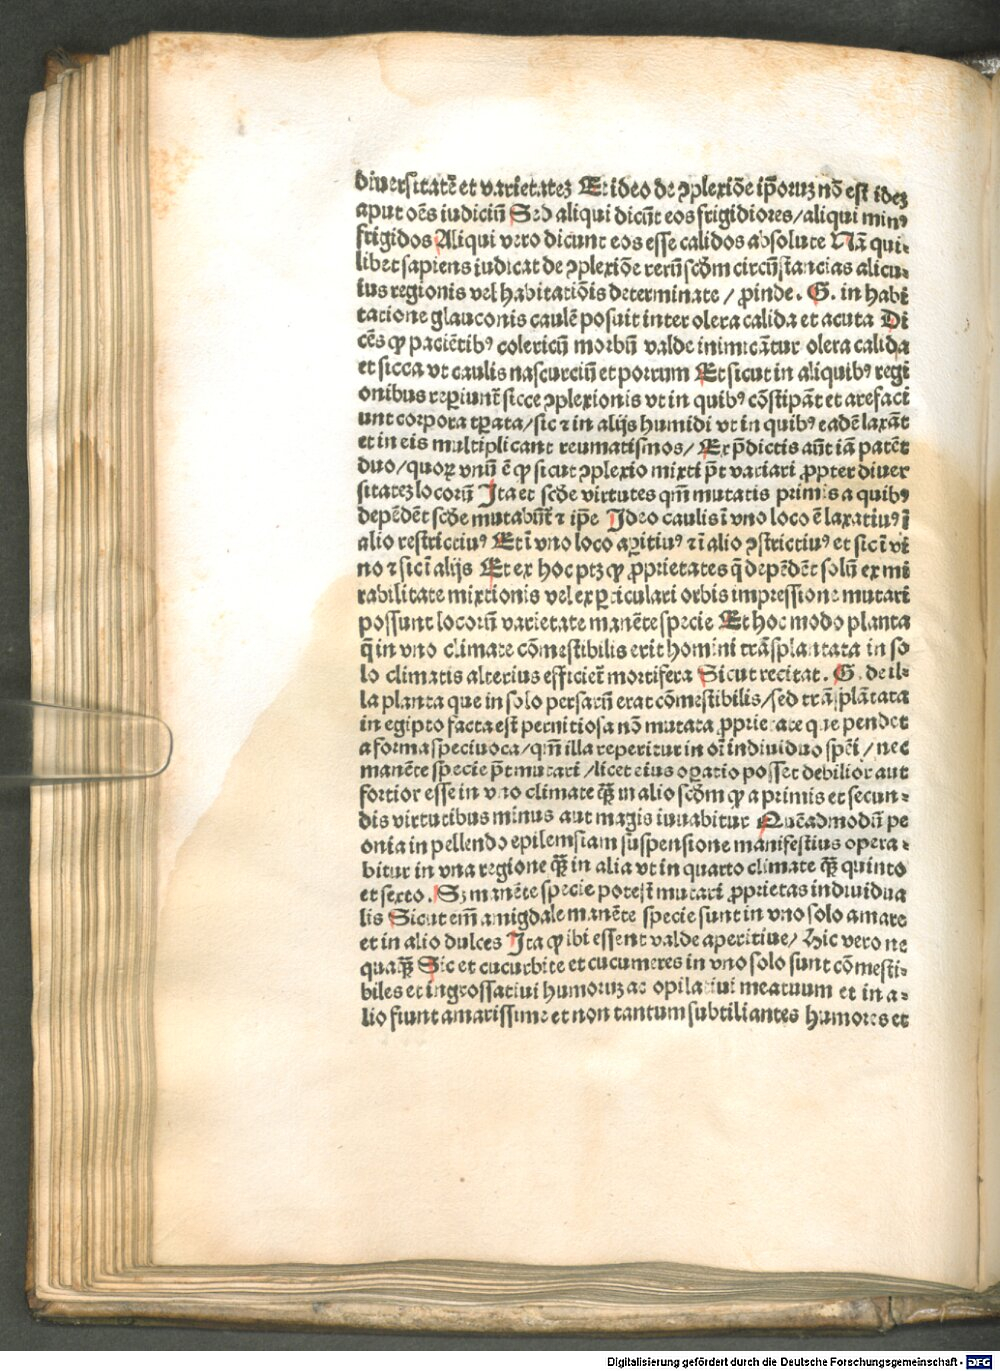 diuersitatē et varietatez Et ideo de ꝯplexiōe ip̄oruz nō est idez
aput oēs iudiciū Sed aliqui dicūt eos frigidiores/aliqui minꝰ
frigidos Aliqui vero dicunt eos esse calidos absolute Nā qui⸗
libet sapiens iudicat de ꝯplexiōe rerū scḋm circūstancias alicu⸗
ius regionis vel habitatiōis determinate / ꝓinde. G. in habi
tatione glauconis caulē posuit inter olera calida et acuta Di
cēs ꝙ paciētibꝰ colericū morbū valde inimicātur olera calida
et sicca vt caulis nascurciū et porrum Et sicut in aliquibꝰ regi
onibus reꝑiunt̄ sicce ꝯplexionis vt in quibꝰ cōstipāt et arefaci
unt corpora tꝑata/sic ⁊ in alijs humidi vt in quibꝰ eadē laxāt
et in eis multiplicant reumatismos/ Ex p̄dictis aūt iā patēt
duo/quoꝝ vnū ē ꝙ sicut ꝯplexio mixti p̄t variari ꝓpter diuer
sitatez locorū Ita et scḋe virtutes qm̄ mutatis primis a quibꝰ
depēdēt scḋe mutabūt̄ ⁊ ip̄e Ideo caulis ī vno loco ē laxatiuꝰ ī
alio restrictiuꝰ Et ī vno loco aꝑitiuꝰ ⁊ ī alio ꝯstrictiuꝰ et sic ī vi
no ⁊ sic ī alijs Et ex hoc ptz ꝙ ꝓprietates q̄ depēdēt solū ex mi
rabilitate mixtionis vel ex ꝑticulari orbis impressione mutari
possunt locorū varietate manēte specie Et hoc modo planta
q̄ in vno climate cōmestibilis erit homini trāsplantata in so
lo climatis alterius efficiet̄ mortifera Sicut recitat. G. de il⸗
la planta que in solo persarū erat cōmestibilis/sed trāsplātata
in egipto facta est pernitiosa nō mutata ꝓprietate que pendet
a forma speciuoca/qm̄ illa reperitur in oī indiuiduo spēi/nec
manēte specie p̄t mutari /licet eius oꝑatio posset debilior aut
fortior esse in vno climate q̄ꝫ in alio scḋm ꝙ a primis et secun⸗
dis virtutibus minus aut magis iuuabitur Quēadmodū pe
onia in pellendo epilemsiam suspensione manifestius opera⸗
bitur in vna regione q̄ꝫ in alia vt in quarto climate q̄ꝫ quinto
et sexto. Sꝫ manēte specie potest mutari ꝓprietas indiuidua
lis Sicut em̄ amigdale manēte specie sunt in vno solo amare
et in alio dulces Ita ꝙ ibi essent valde aperitiue/ Hic vero ne
quaq̄ꝫ Sic et cucurbite et cucumeres in vno solo sunt cōmesti⸗
biles et ingrossatiui humoruz ac opilatiui meatuum et in a⸗
lio fiunt amarissime et non tantum subtiliantes humores et
Digitalisierung gefördert durch die Deutsche Forschungsgemeinschaft - DFG